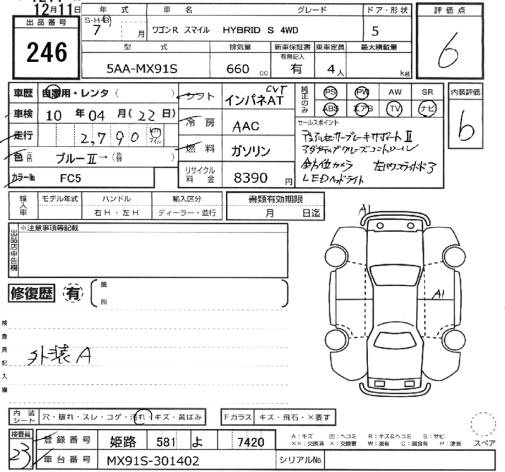 12月11日
出品番号
246
年式 車名 グレード ドア・形状 評価点
S・H・R
7 月 ワゴンR スマイル HYBRID S 4WD 5 6
型式 排気量 新車保証書 乗車定員 最大積載量
有無記入
5AA-MX91S 660 cc 有 4人 kg
車歴 自家用・レンタ ( ) シフト CVT インパネAT
純正のみ PS PW AW SR
ABS エアB TV ナビ
内装評価
b
車検 10年 04月 (22日) 冷房 AAC
走行 2,790 燃料 ガソリン
色 ブルーⅡ→ ( ) リサイクル料金 8390円
カラーNo FC5
セールスポイント
デュアルセンサーブレーキサポートⅡ
アダプティブクルーズコントロール
全方位カメラ 左パワスラドア
LEDヘッドライト
輸入車 モデル年式 ハンドル 輸入区分 書類有効期限
右H・左H ディーラー・並行 月 日迄
出品店申告欄
※注意事項等記載
修復歴 有 箇所
A1
A1
検査員記入欄
外装A
内装シート 穴・破れ・スレ・コゲ・汚れ・キズ・黄ばみ Fガラス キズ・飛石・×要す
検査員
23
登録番号 姫路 581 よ 7420
車台番号 MX91S-301402 シリアルNo.
A：キズ U：凹ヘコミ B：キズ&ヘコミ S：サビ
××：交換済 ×：交換要 W：波有 C：腐食有 P：塗装
スペア